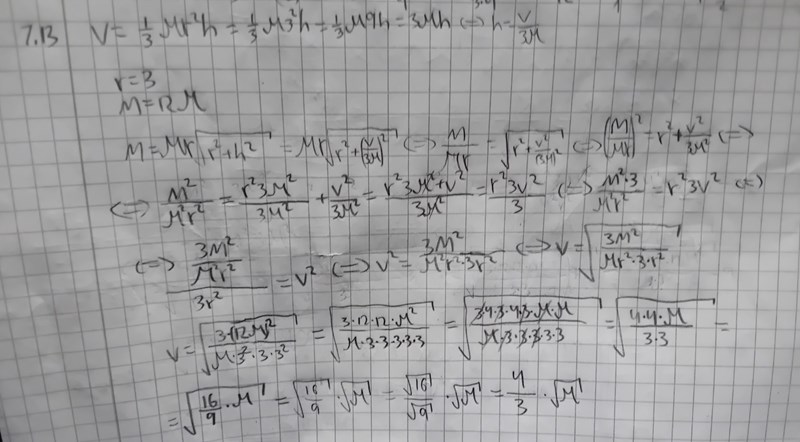 7.13 V = 1/3 πr²h = 1/3 π3²h = 1/3 π9h = 3πh <=> h = V/3π
r = 3
M = 12π
M = πr√(r²+h²) = πr√(r²+(V/3π)²) <=> M/πr = √(r²+V²/(3π)²) <=> (M/πr)² = r²+V²/3π² <=>
<=> M²/π²r² = r²3π²/3π² + V²/3π² = (r²3π²+V²)/3π² = r²3V²/3 <=> M²·3/π²r² = r²3V² <=>
<=> (3M²/π²r²)/3r² = V² <=> V² = 3M²/π²r²·3r² <=> V = √(3M²/πr²·3·r²)
V = √(3(12π)²/π·3²·3·3²) = √(3·12·12·π²/π·3·3·3·3·3) = √(3·4·3·4·3·π·π/π·3·3·3·3·3) = √(4·4·π/3·3) =
= √(16/9·π) = √(16/9)·√π = √16/√9·√π = 4/3·√π